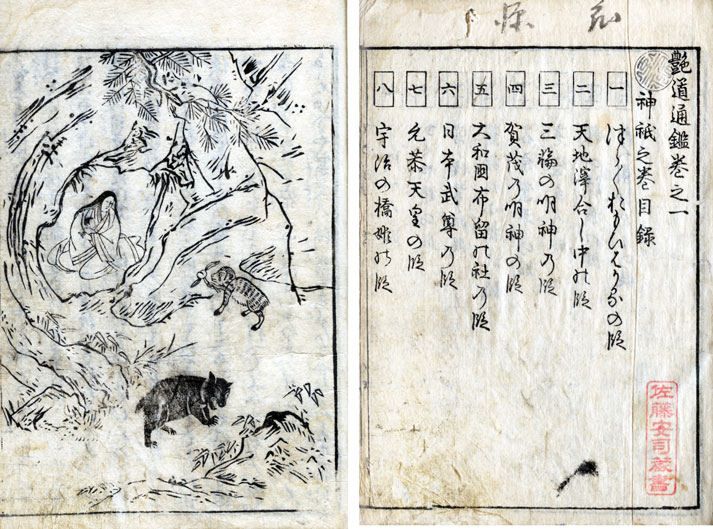 艷道通鑑巻之一
神祇之巻目録
一 の段
二 天地合し中の段
三 三輪の明神の段
四 賀茂の明神の段
五 大和国布留の社の段
六 日本武尊の段
七 允恭天皇の段
八 宇治の橋姫の段
佐藤安司蔵書